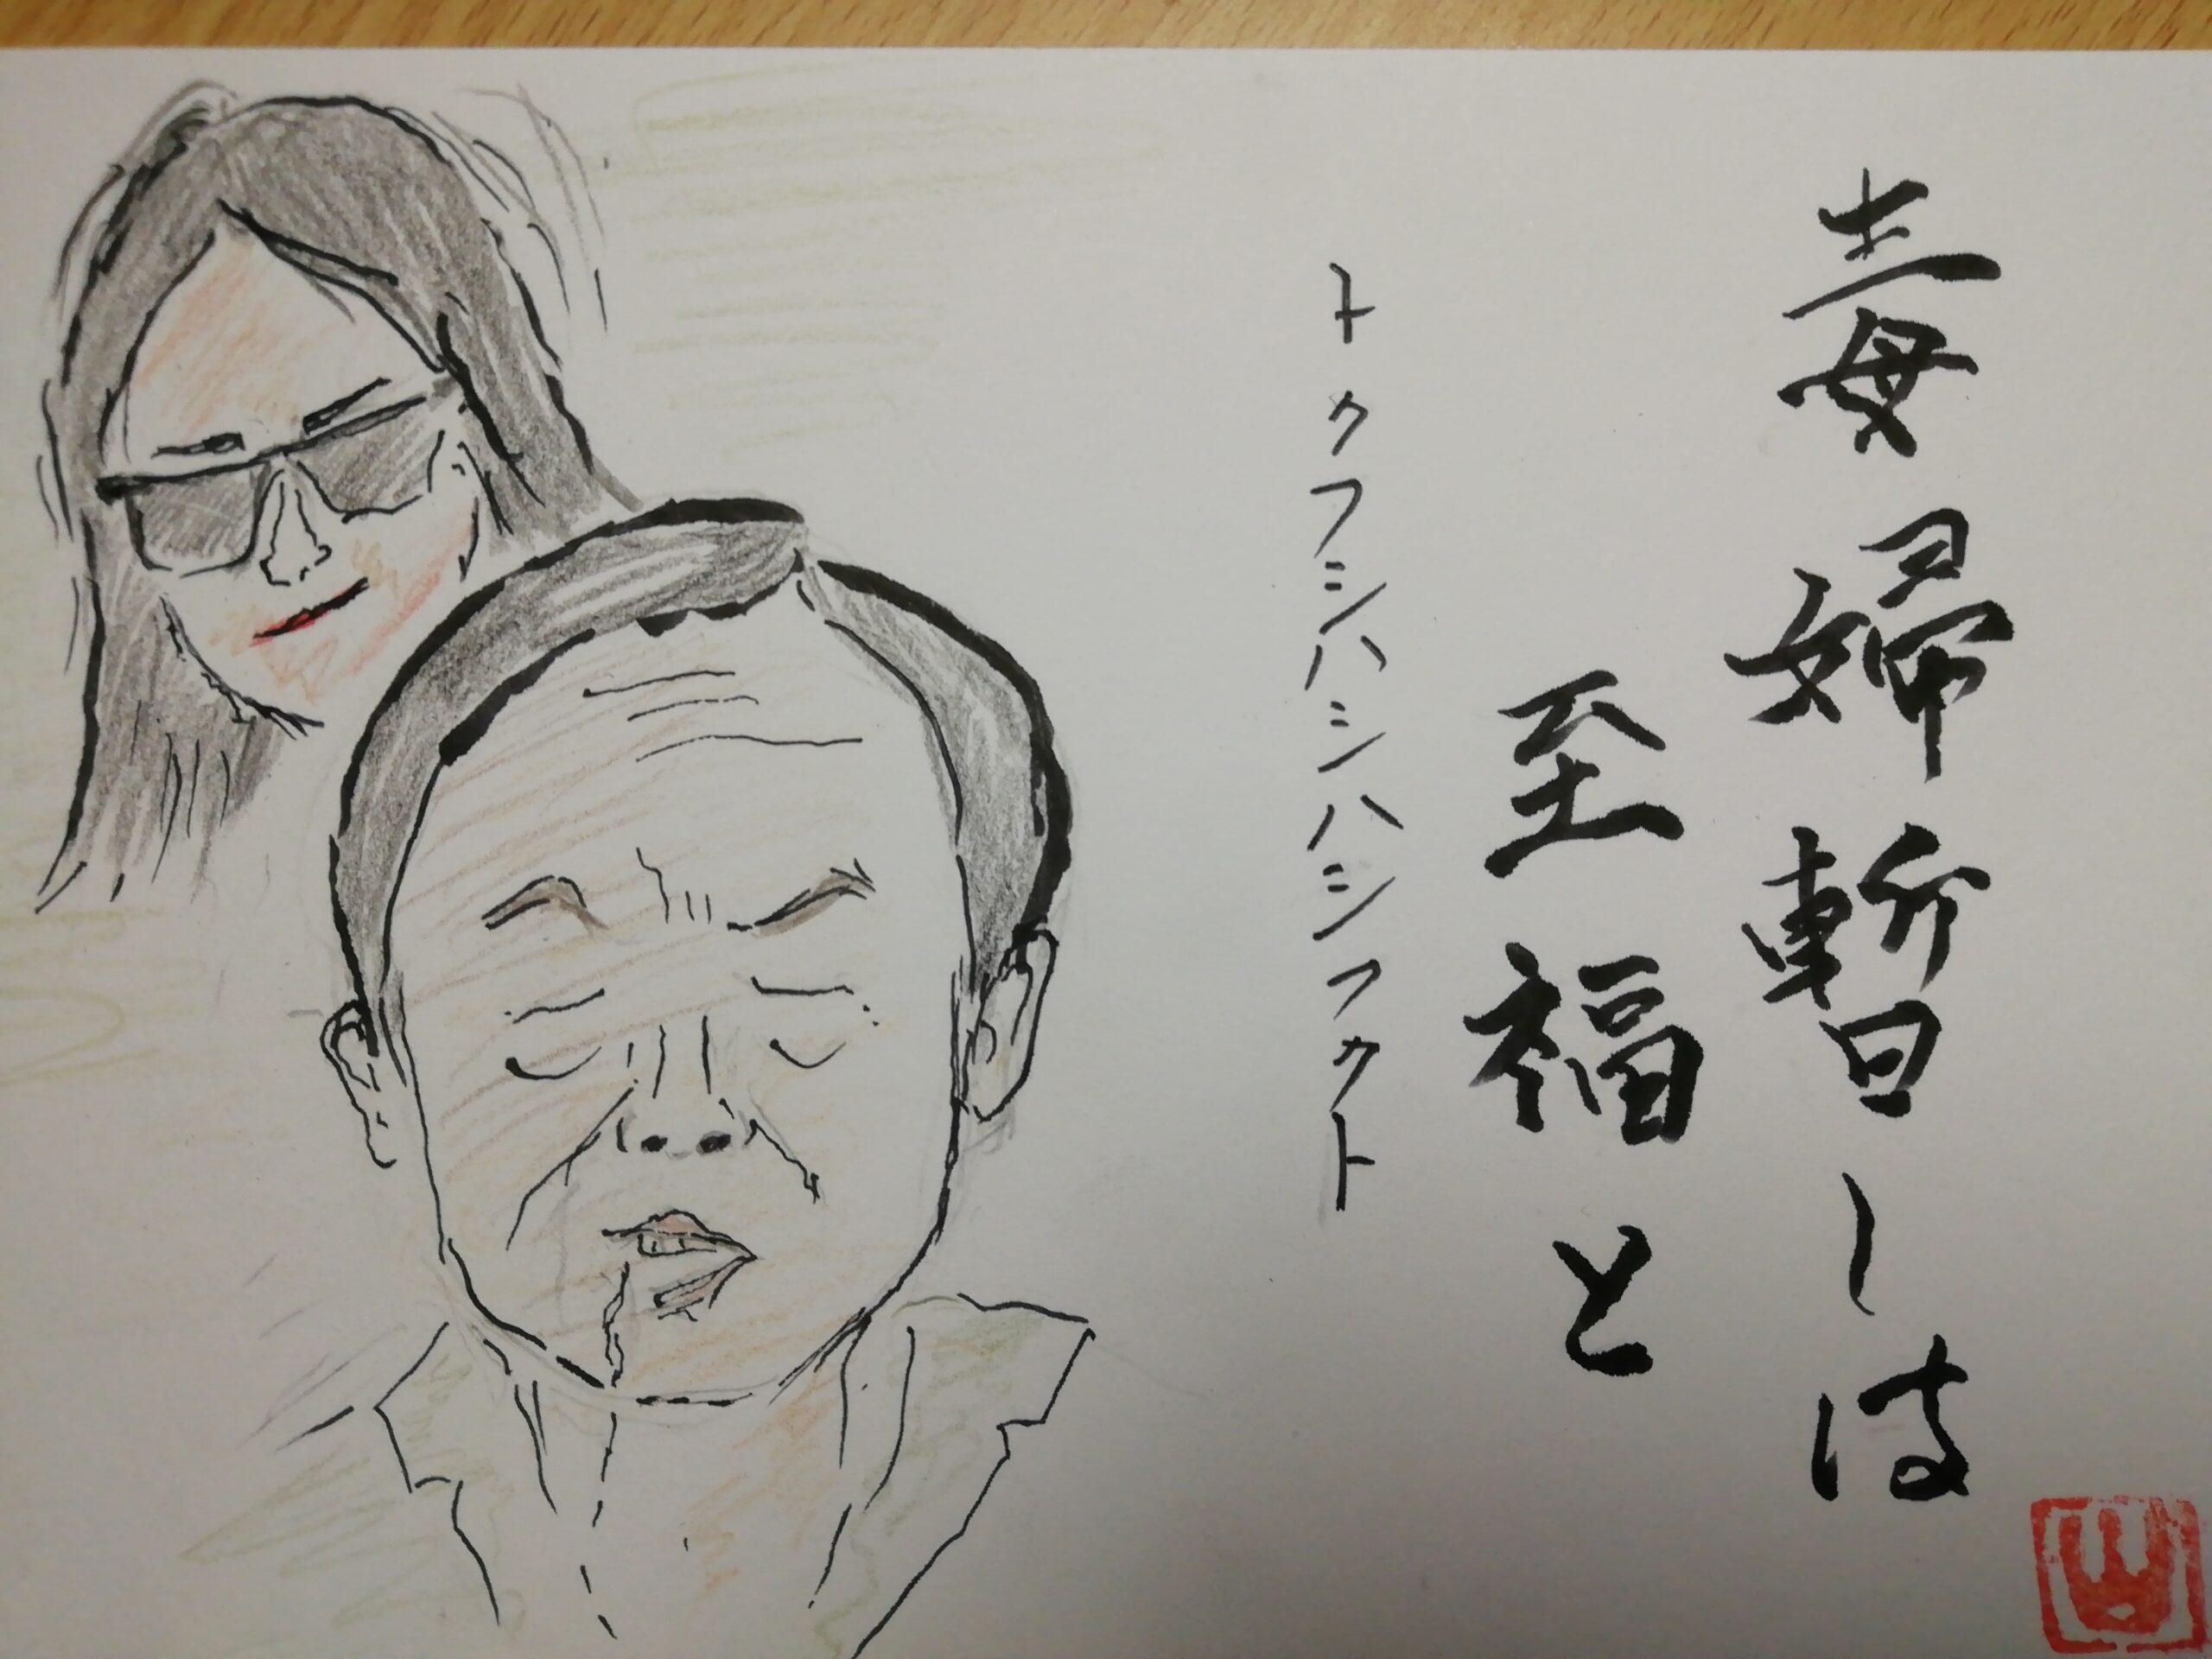 毒婦暫しは
至福と
トクフシハシハシフクト
山